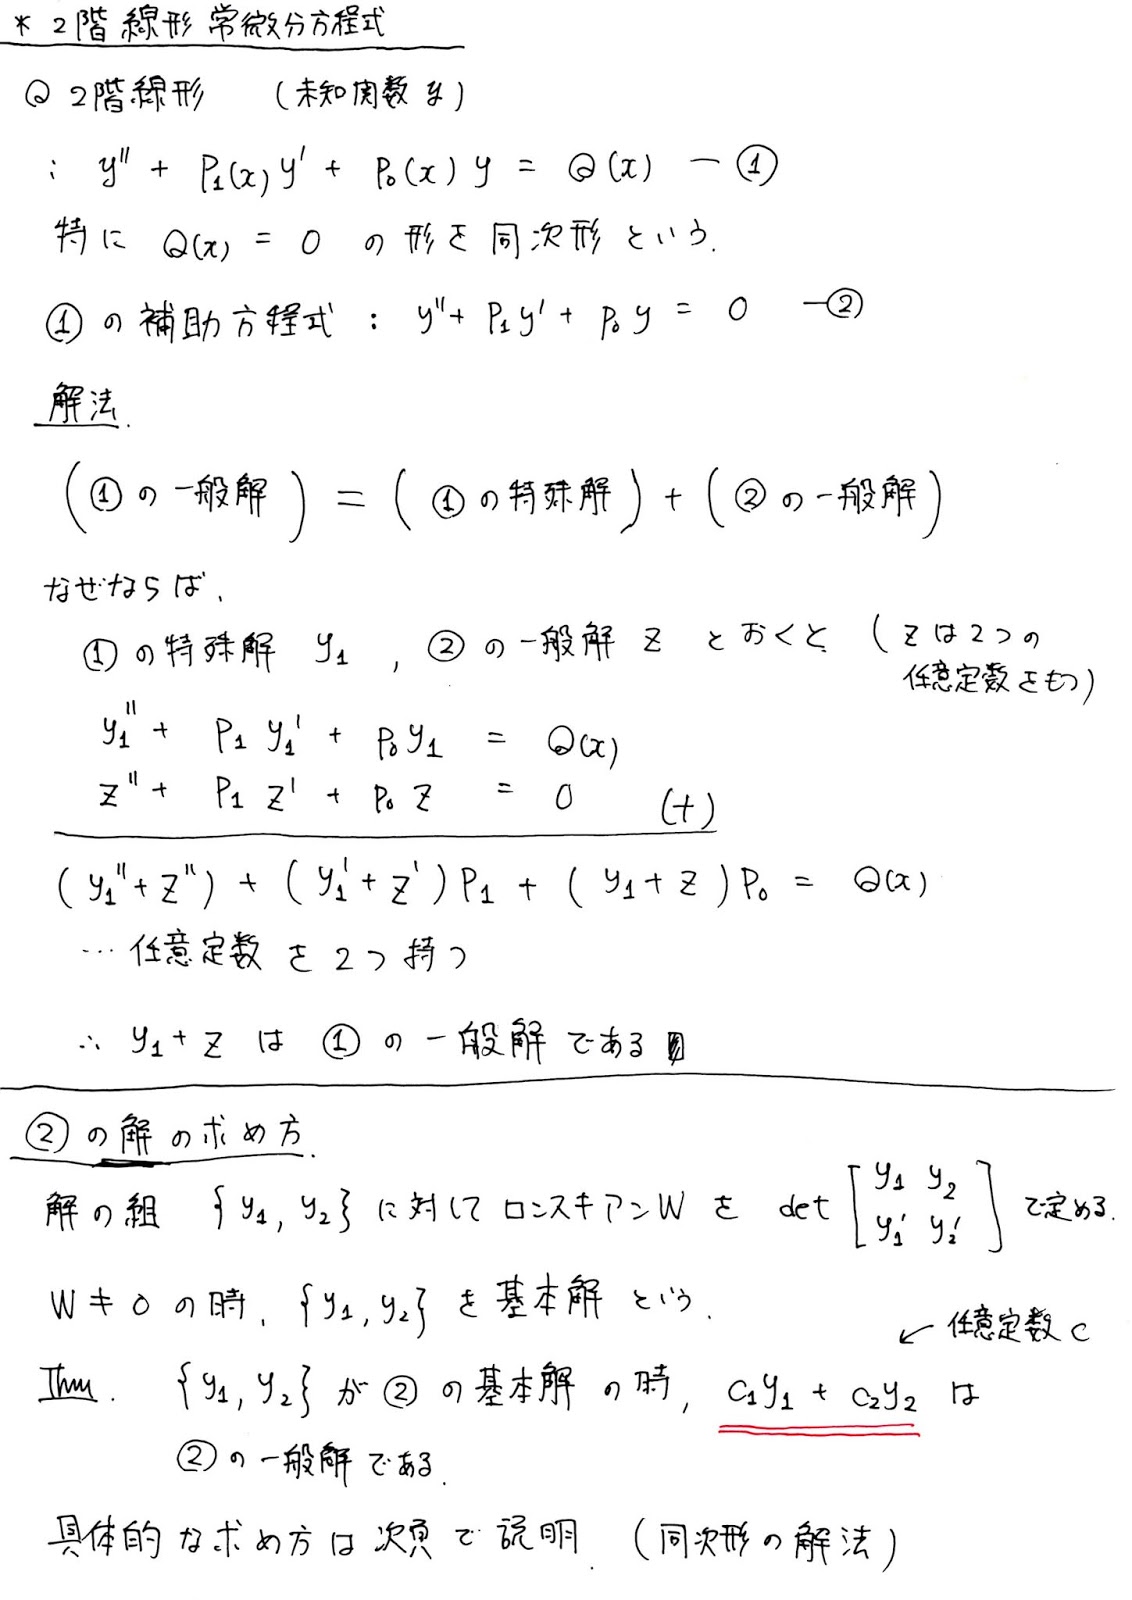 * 2階線形常微分方程式
Q 2階線形 (未知関数 y)
: y'' + P₁(x) y' + P₀(x) y = Q(x) — ①
特に Q(x) = 0 の形を同次形という.
①の補助方程式 : y'' + P₁y' + P₀y = 0 —②
解法.
(①の一般解) = (①の特殊解) + (②の一般解)
なぜならば、
①の特殊解 y₁ , ②の一般解 z とおくと (zは2つの
任意定数をもつ)
y₁'' + P₁ y₁' + P₀y₁ = Q(x)
z'' + P₁ z' + P₀ z = 0 (+)
(y₁''+z'') + (y₁'+z')P₁ + (y₁+z)P₀ = Q(x)
… 任意定数を2つ持つ
∴ y₁+z は ①の一般解である
②の解の求め方.
解の組 {y₁, y₂} に対してロンスキアンW を det [y₁ y₂ y₁' y₂'] で定める.
W ≠ 0 の時, {y₁, y₂} を基本解という.
← 任意定数 C
Thm. {y₁, y₂} が②の基本解の時, C₁y₁ + C₂y₂ は
②の一般解である.
具体的な求め方は次頁で説明. (同次形の解法)